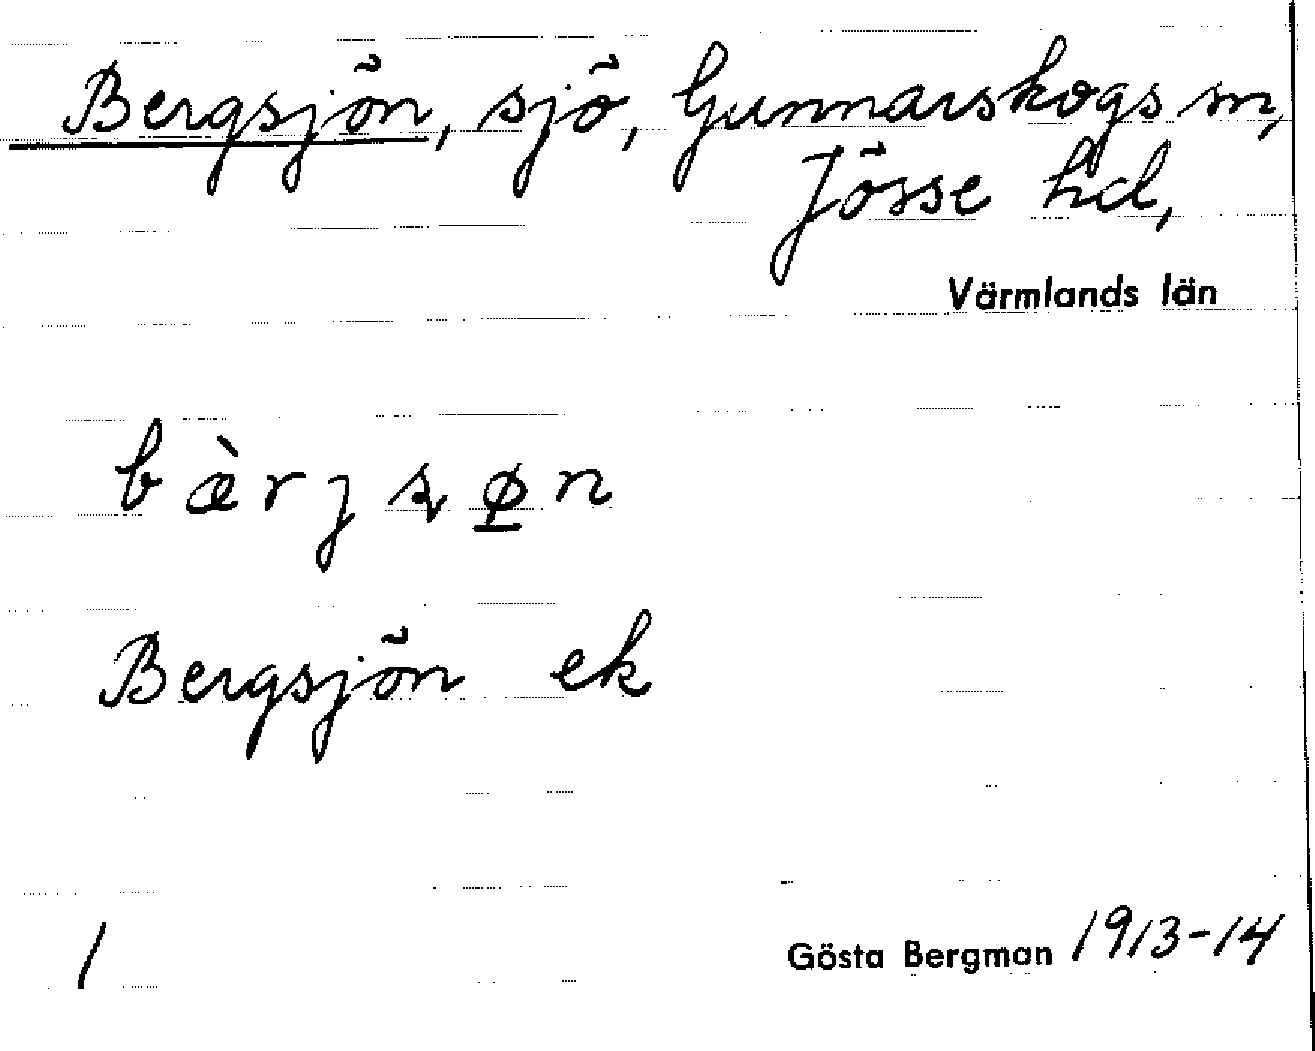 Bergsjön, sjö, Gunnarskogs sn,
Jösse hd,
Värmlands län
bæ̀rjʂø̲n
Bergsjön ek
1
Gösta Bergman 1913-14